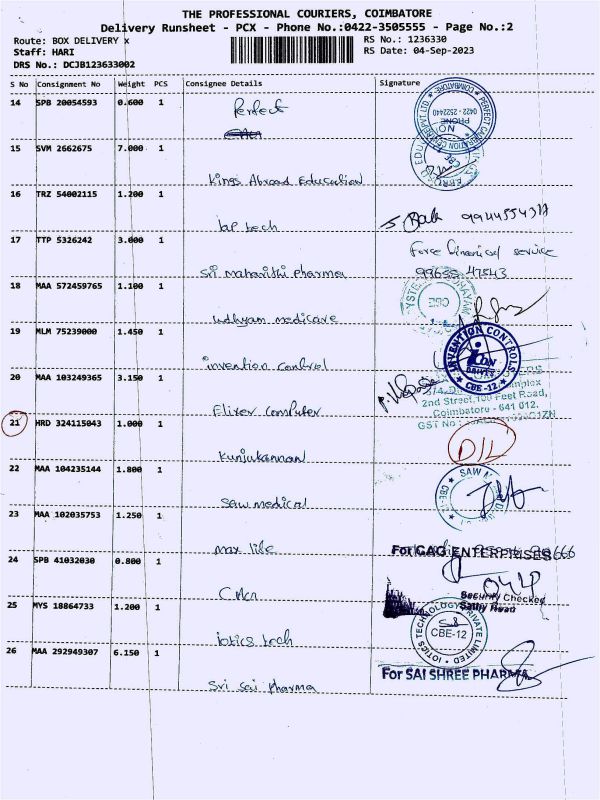 THE PROFESSIONAL COURIERS, COIMBATORE
Delivery Runsheet - PCX - Phone No.:0422-3505555 - Page No.:2
Route: BOX DELIVERY x
RS No.: 1236330
Staff: HARI
RS Date: 04-Sep-2023
DRS No.: DCJB123633002
S No Consignment No Weight PCS Consignee Details Signature
14 SPB 20054593 0.600 1
Perfect
PERFECT
0422 - 2522440
PHONE NO
15 SVM 2662675 7.000 1
Kings Abroad Education
16 TRZ 54002115 1.200 1
lap tech
17 TTP 5326242 3.000 1
Force financial service
Sri maharishi pharma
99655 47543
18 MAA 572459765 1.100 1
CBE
udhyam medicare
19 MLM 75239000 1.450 1
INVENTION CONTROLS
CBE -12
invention control
20 MAA 103249365 3.150 1
2nd Street, 100 Feet Road,
Coimbatore - 641 012.
Elixer Computer
21 HRD 324115043 1.000 1
D/L
Kunjukannan
22 MAA 104235144 1.800 1
SAW
CBE-1
Saw medical
23 MAA 102035753 1.250 1
max life
For GAG ENTERPRISES
24 SPB 41032030 0.800 1
Security Checked
25 MYS 18864733 1.200 1
IOTICS TECHNOLOGY PRIVATE LIMITED
CBE-12
iotics tech
26 MAA 292949307 6.150 1
For SAI SHREE PHARMA
Sri sai pharma